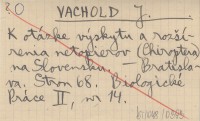 VACHOLD J.
K otázke výskytu a rozší-
renia netopierov (Chiroptera)
na Slovensku. — Bratisla-
va. Stron 68. Biologické
Práce II, nr 14.